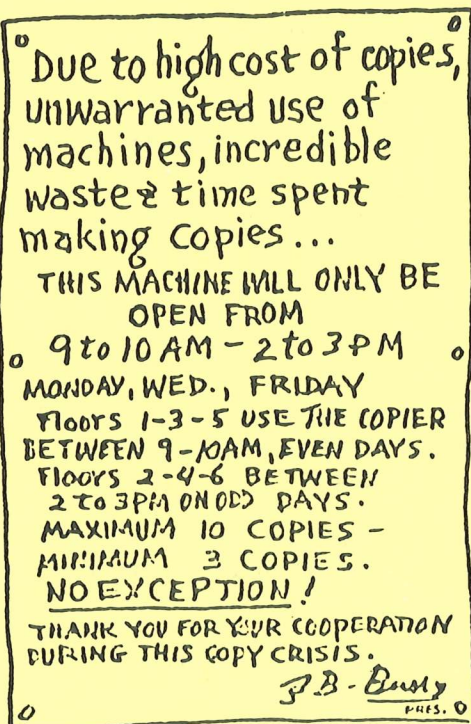 Due to high cost of copies,
unwarranted use of
machines, incredible
waste & time spent
making copies...
THIS MACHINE WILL ONLY BE
OPEN FROM
9 to 10 AM - 2 to 3 PM
MONDAY, WED., FRIDAY
Floors 1-3-5 USE THE COPIER
BETWEEN 9-10AM, EVEN DAYS.
Floors 2-4-6 BETWEEN
2 to 3PM ON ODD DAYS.
MAXIMUM 10 COPIES -
MINIMUM 3 COPIES.
NO EXCEPTION!
THANK YOU FOR YOUR COOPERATION
DURING THIS COPY CRISIS.
PRES.